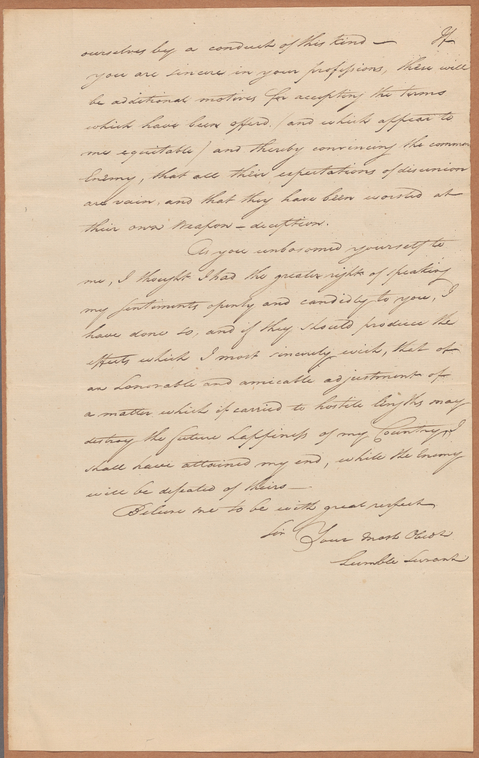 ourselves by a conduct of this kind — If
you are sincere in your professions, there will
be additional motives for accepting the terms
which have been offerd. (and which appear to
me equitable) and thereby convincing the common
Enemy, that all their expectations of disunion
are vain, and that they have been worsted at
their own Weapon — deception.
As you unbosomed yourself to
me, I thought I had the greater right of speaking
my sentiments openly and candidly to you, I
have done so, and if they should produce the
effects, which I most sincerely wish, that of
an honorable and amicable adjustment of
a matter which if carried to hostile lengths may
destroy the future happiness of my Country, I
shall have attained my end, while the Enemy
will be defeated of theirs —
Believe me to be with great respect
Sir Your Most Obedt
humble Servant